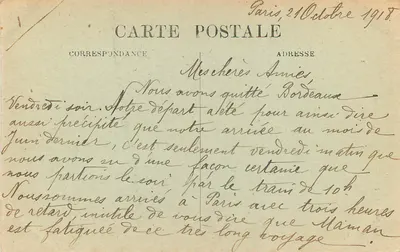 Paris, 21 Octobre 1918.
CARTE POSTALE
CORRESPONDANCE ADRESSE
Mes chères Amies,
Nous avons quitté Bordeaux
Vendredi soir. Notre départ a été pour ainsi dire
aussi précipité que notre arrivée au mois de
Juin dernier, c'est seulement vendredi matin que
nous avons su d'une façon certaine que
nous partions le soir par le train de 10h
Nous sommes arrivés à Paris avec trois heures
de retard, inutile de vous dire que Maman
est fatiguée de ce très long voyage